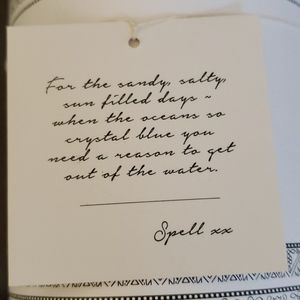 For the sandy, salty,
sun filled days ~
when the oceans so
crystal blue you
need a reason to get
out of the water.
Spell xx